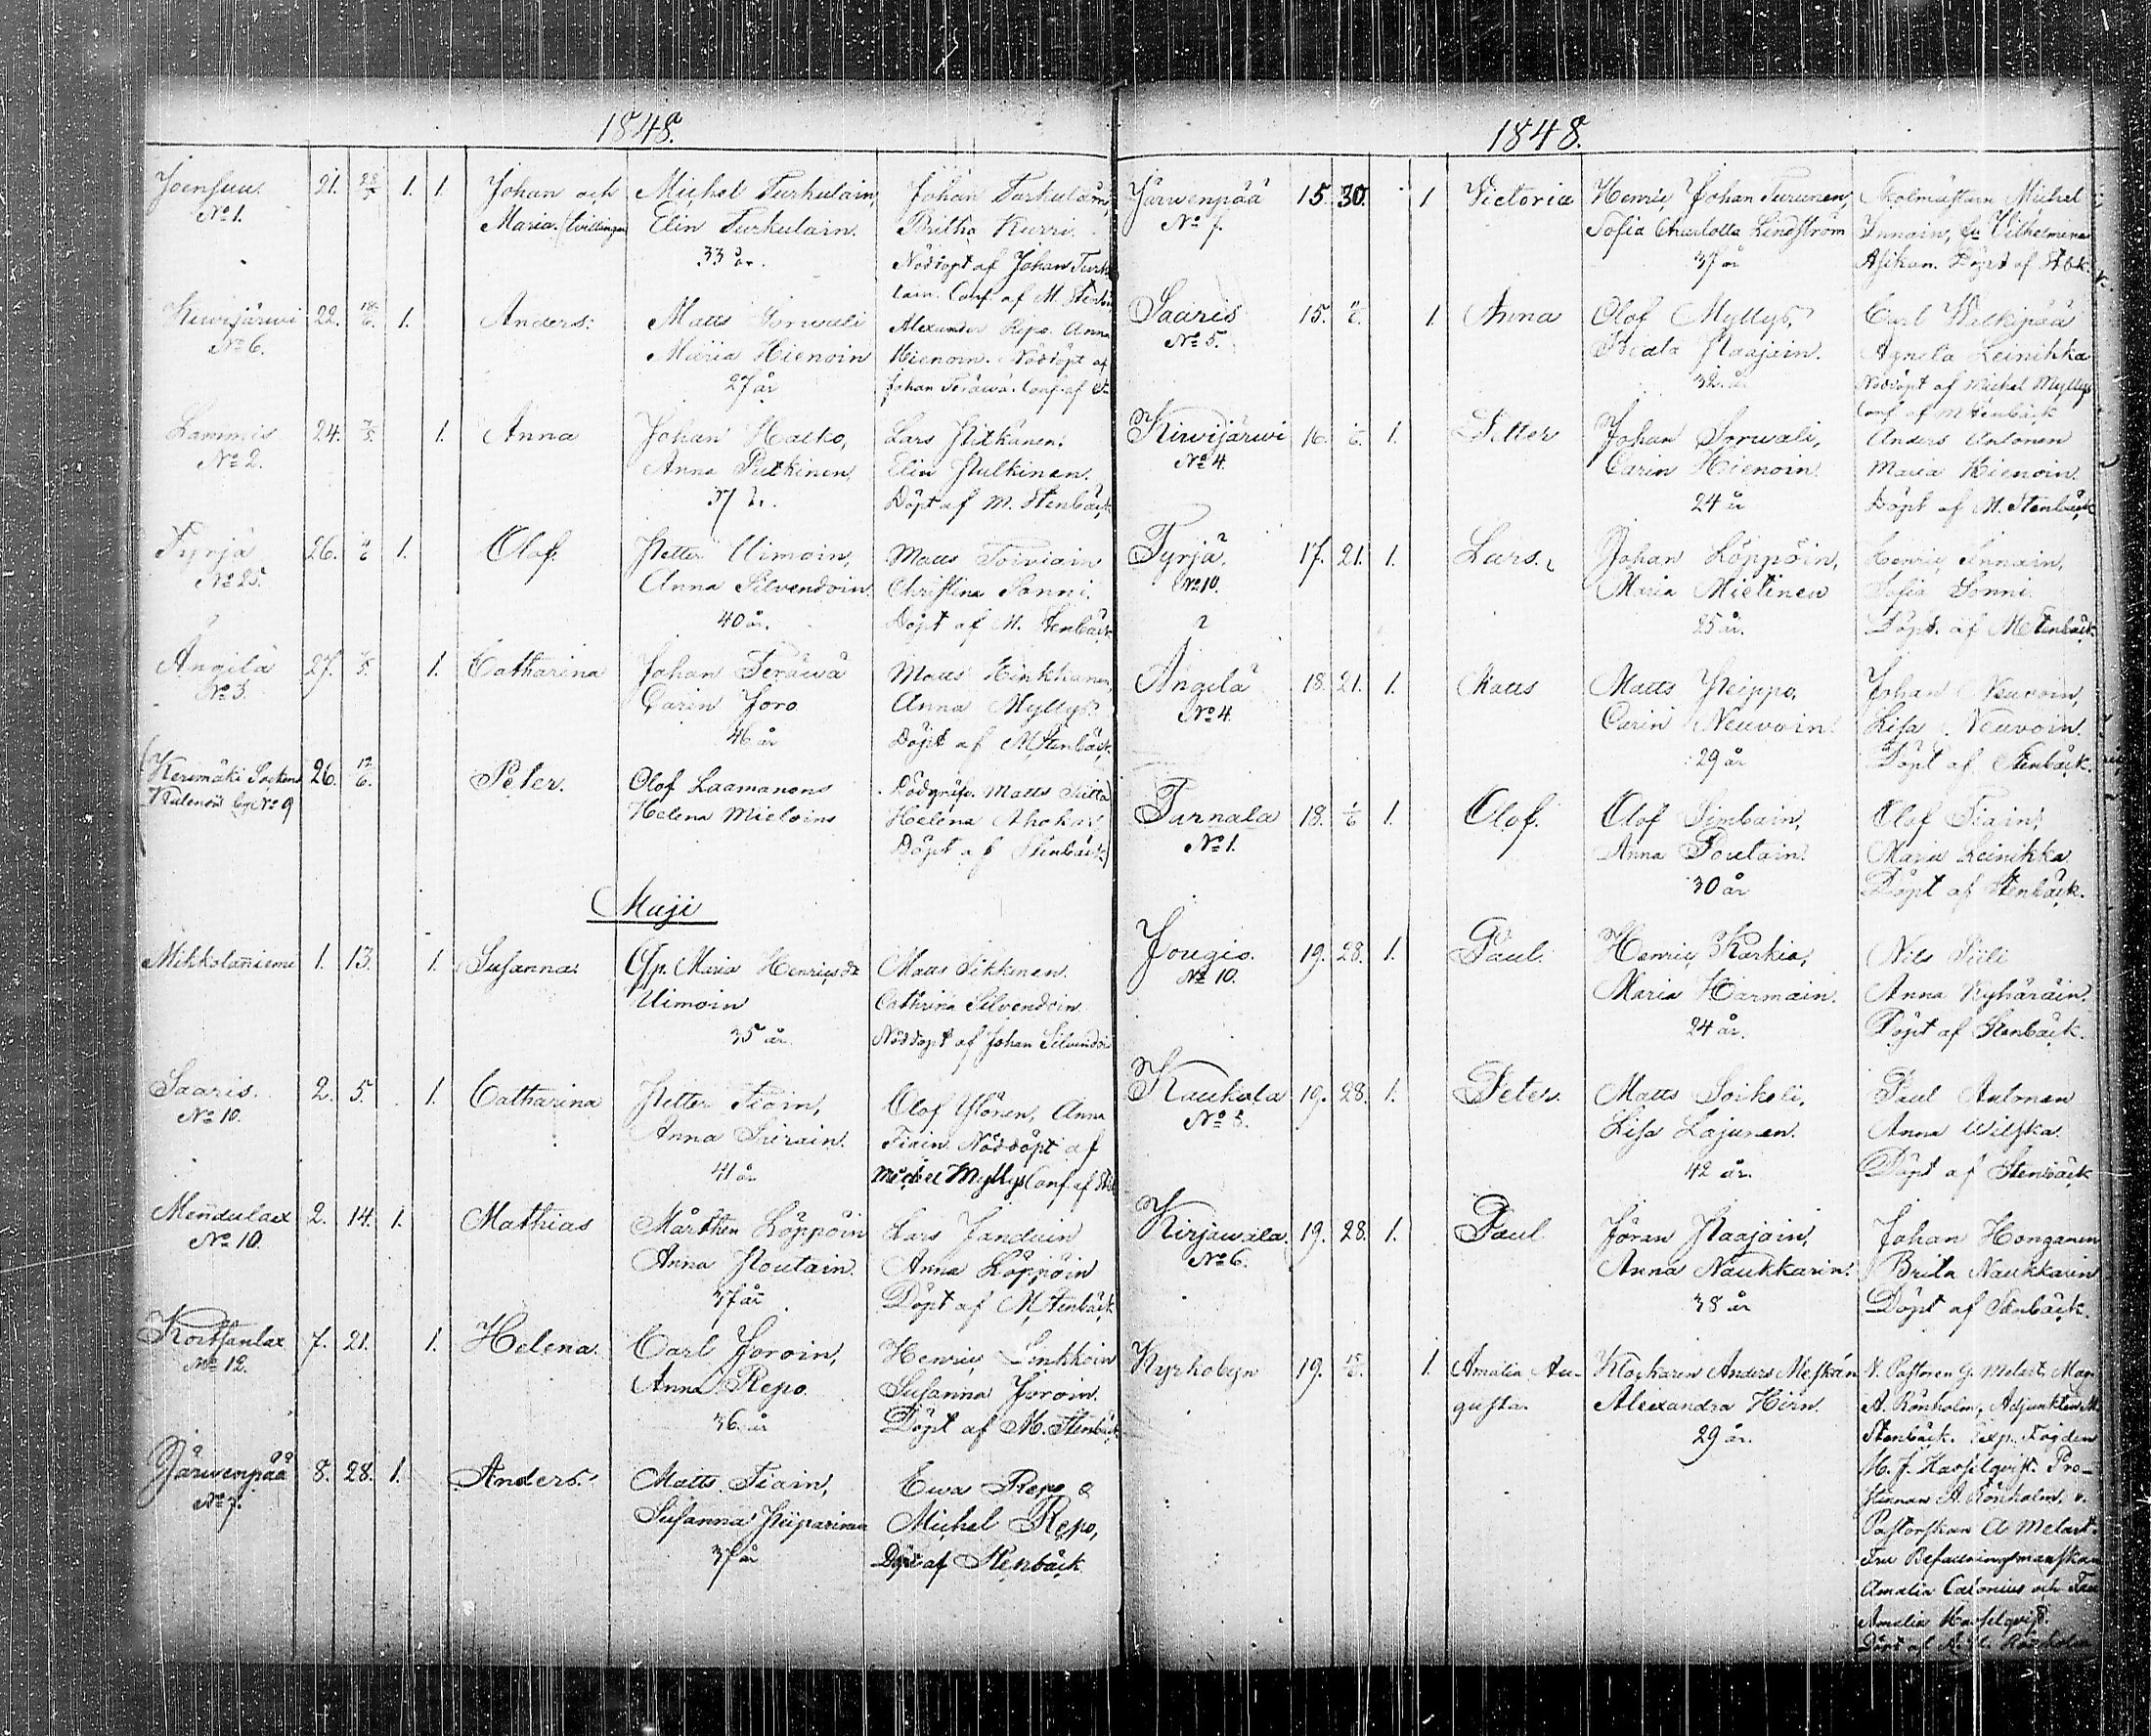 1848.
Joensuu 21. 28/5 1. 1. Johan och Michel Turkulain, Johan Turkulain,
No 1. Maria. (tvillingar Elin Turkulain. Britha Kurri.
33 år. Nöddöpt af Johan Turku
lain. Conf. af M. Stenbäck
Kirvijärwi 22. 18/6. 1. Anders. Matts Sorwali Alexander Repo. Anna
No 6. Maria Hienoin Hienoin. Nöddöpt af
27 år Johan Teräwä. Conf. af St
Lammis 24. 7/5. 1. Anna Johan Hatko, Lars Pitkänen.
No 2. Anna Putkinen, Elin Pulkinen.
37 år. Döpt af M. Stenbäck
Tyrjä 26. 4/6 1. Olof. Petter Uimoin, Matts Toiviain
No 25. Anna Silvendoin. Christina Sonni.
40 år. Döpt af M. Stenbäck
Ängilä 27. 7/5. 1. Catharina Johan Teräwä Matts Hinkkanen,
No 3. Carin Joro Anna Myllys.
46 år Döpt af M Stenbäck.
(Kerimäki Sockens 26. 12/6. Peter. Olof Laamanens Matts
by No 9 Helena Mieloins Helena Ahokas
Döpt af Stenbäck)
Maji
Mikkolanniemi 1. 13. 1. Susanna. Qp. Maria Henricsdr Matts Sikkinen.
Uimoin Cathrina Silvendoin
35 år Nöddöpt af Johan Silvendoin
Saaris. 2. 5. 1. Catharina Petter Tiain, Olof Ylönen, Anna
No 10. Anna Siirain. Tiain. Nöddöpt af
41 år Michel Myllys Conf. af Stb
Mendulax 2. 14. 1. Mathias Mårthen Löppöin Lars Janduin
No 10. Anna Poutain. Anna Löppöin
37 år Döpt af M Stenbäck
Koitsanlax 7. 21. 1. Helena. Carl Joroin, Henric Sinkkoin
No 12. Anna Repo. Susanna Joroin.
36. år Döpt af M. Stenbäck
Järwenpää 8. 28. 1. Anders. Matts Tiain, Ewa Repo &
No 7. Susanna Peiparinen Michel Repo,
37 år Döpt af Stenbäck
1848.
Järwenpää 15. 30. 1 Victoria Henric Johan Turunen, Skolmästarn Michel
No 7. Sofia Charlotta Lindström Innain, Vilhelmina
37 år Asikan. Döpt af Stbk.
Saaris 15. 1. Anna Olof Myllys, Carl Walkipää
No 5. Beata Paajain. Agneta Leinikka
32. år Nöddöpt af Michel Myllys
Conf. af M Stenbäck
Kirvijärwi 16. 1. Petter Johan Sorwali, Anders Antonen
No 4. Carin Hienoin. Maria Hienoin.
24 år Döpt af M. Stenbäck
Tyrjä. 17. 21. 1. Lars. Johan Löppöin, Henric Innain,
No 10. Maria Mietinen Sofia Sonni.
25 år. Döpt. af M Stenbäck.
Ängilä 18. 21. 1. Matts Matts Peippo, Johan Neuvoin,
No 4. Carin Neuvoin. Lisa Neuvoin.
29 år Döpt af Stenbäck.
Tarnala 18. 1/6 1. Olof. Olof Simbain, Olof Tiain,
No 1. Anna Poutain. Maria Leinikka
30 år Döpt af Stenbäck.
Jougio. 19. 28. 1. Paul. Henric Karkia, Nils Piili
No 10. Maria Harmain. Anna Kyhäräin.
24 år. Döpt af Stenbäck.
Kaukola 19. 28. 1. Peter. Matts Soikeli, Paul Antonen
No 5. Lisa Lajunen. Anna Wilska.
42 år. Döpt af Stenbäck
Kirjawala. 19. 28. 1. Paul Jöran Paajain, Johan Honganen
No 6. Anna Naukkarin. Brita Naukkarin
38 år Döpt af Stenbäck.
Kyrkobyn 19. 15/6. 1. Amalia Au- Klockaren Anders Meskän V. Pastoren G. Melart. Mag.
gusta. Alexandra Hirn. A. Rönholm, Adjunkten M.
29 år. Stenbäck. Exp. Fogden
M. J. Hasselqvist. Pro-
stinnan A. Rönholm, v.
Pastorskan A Melart.
Fru Befallningsmanskan
Amalia Calonius och Fru
Amalia Hasselqvist.
Döpt af Rönholm